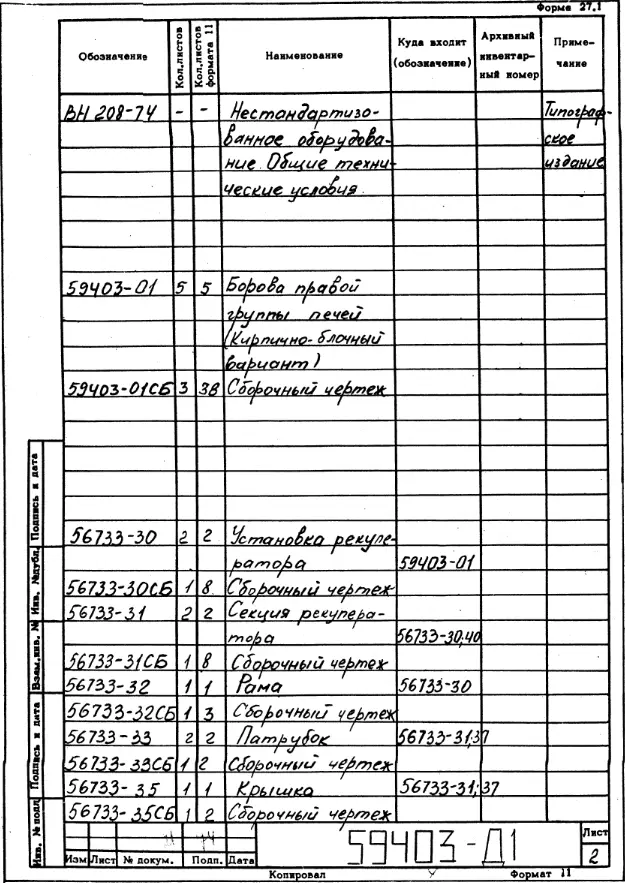 Форма 27.1
Обозначение Кол.листов Кол.листов формата 11 Наименование Куда входит (обозначение) Архивный инвентарный номер Примечание
ВН 208-74 - - Нестандартизо- Типограф-
ванное оборудова- ское
ние. Общие техни- издание
ческие условия
59403-01 5 5 Борова правой
группы печей
(Кирпично-блочный
вариант)
59403-01СБ 3 38 Сборочный чертеж
56733-30 2 2 Установка рекупе-
ратора 59403-01
56733-30СБ 1 8 Сборочный чертеж
56733-31 2 2 Секция рекупера-
тора 56733-30,40
56733-31СБ 1 8 Сборочный чертеж
56733-32 1 1 Рама 56733-30
56733-32СБ 1 3 Сборочный чертеж
56733-33 2 2 Патрубок 56733-31,37
56733-33СБ 1 2 Сборочный чертеж
56733-35 1 1 Крышка 56733-31;37
56733-35СБ 1 2 Сборочный чертеж
Инв. № подл. Подпись и дата Взам.инв. № Инв. №дубл. Подпись и дата
59403-Д1
Лист
2
Изм Лист № докум. Подп. Дата
Копировал Формат 11